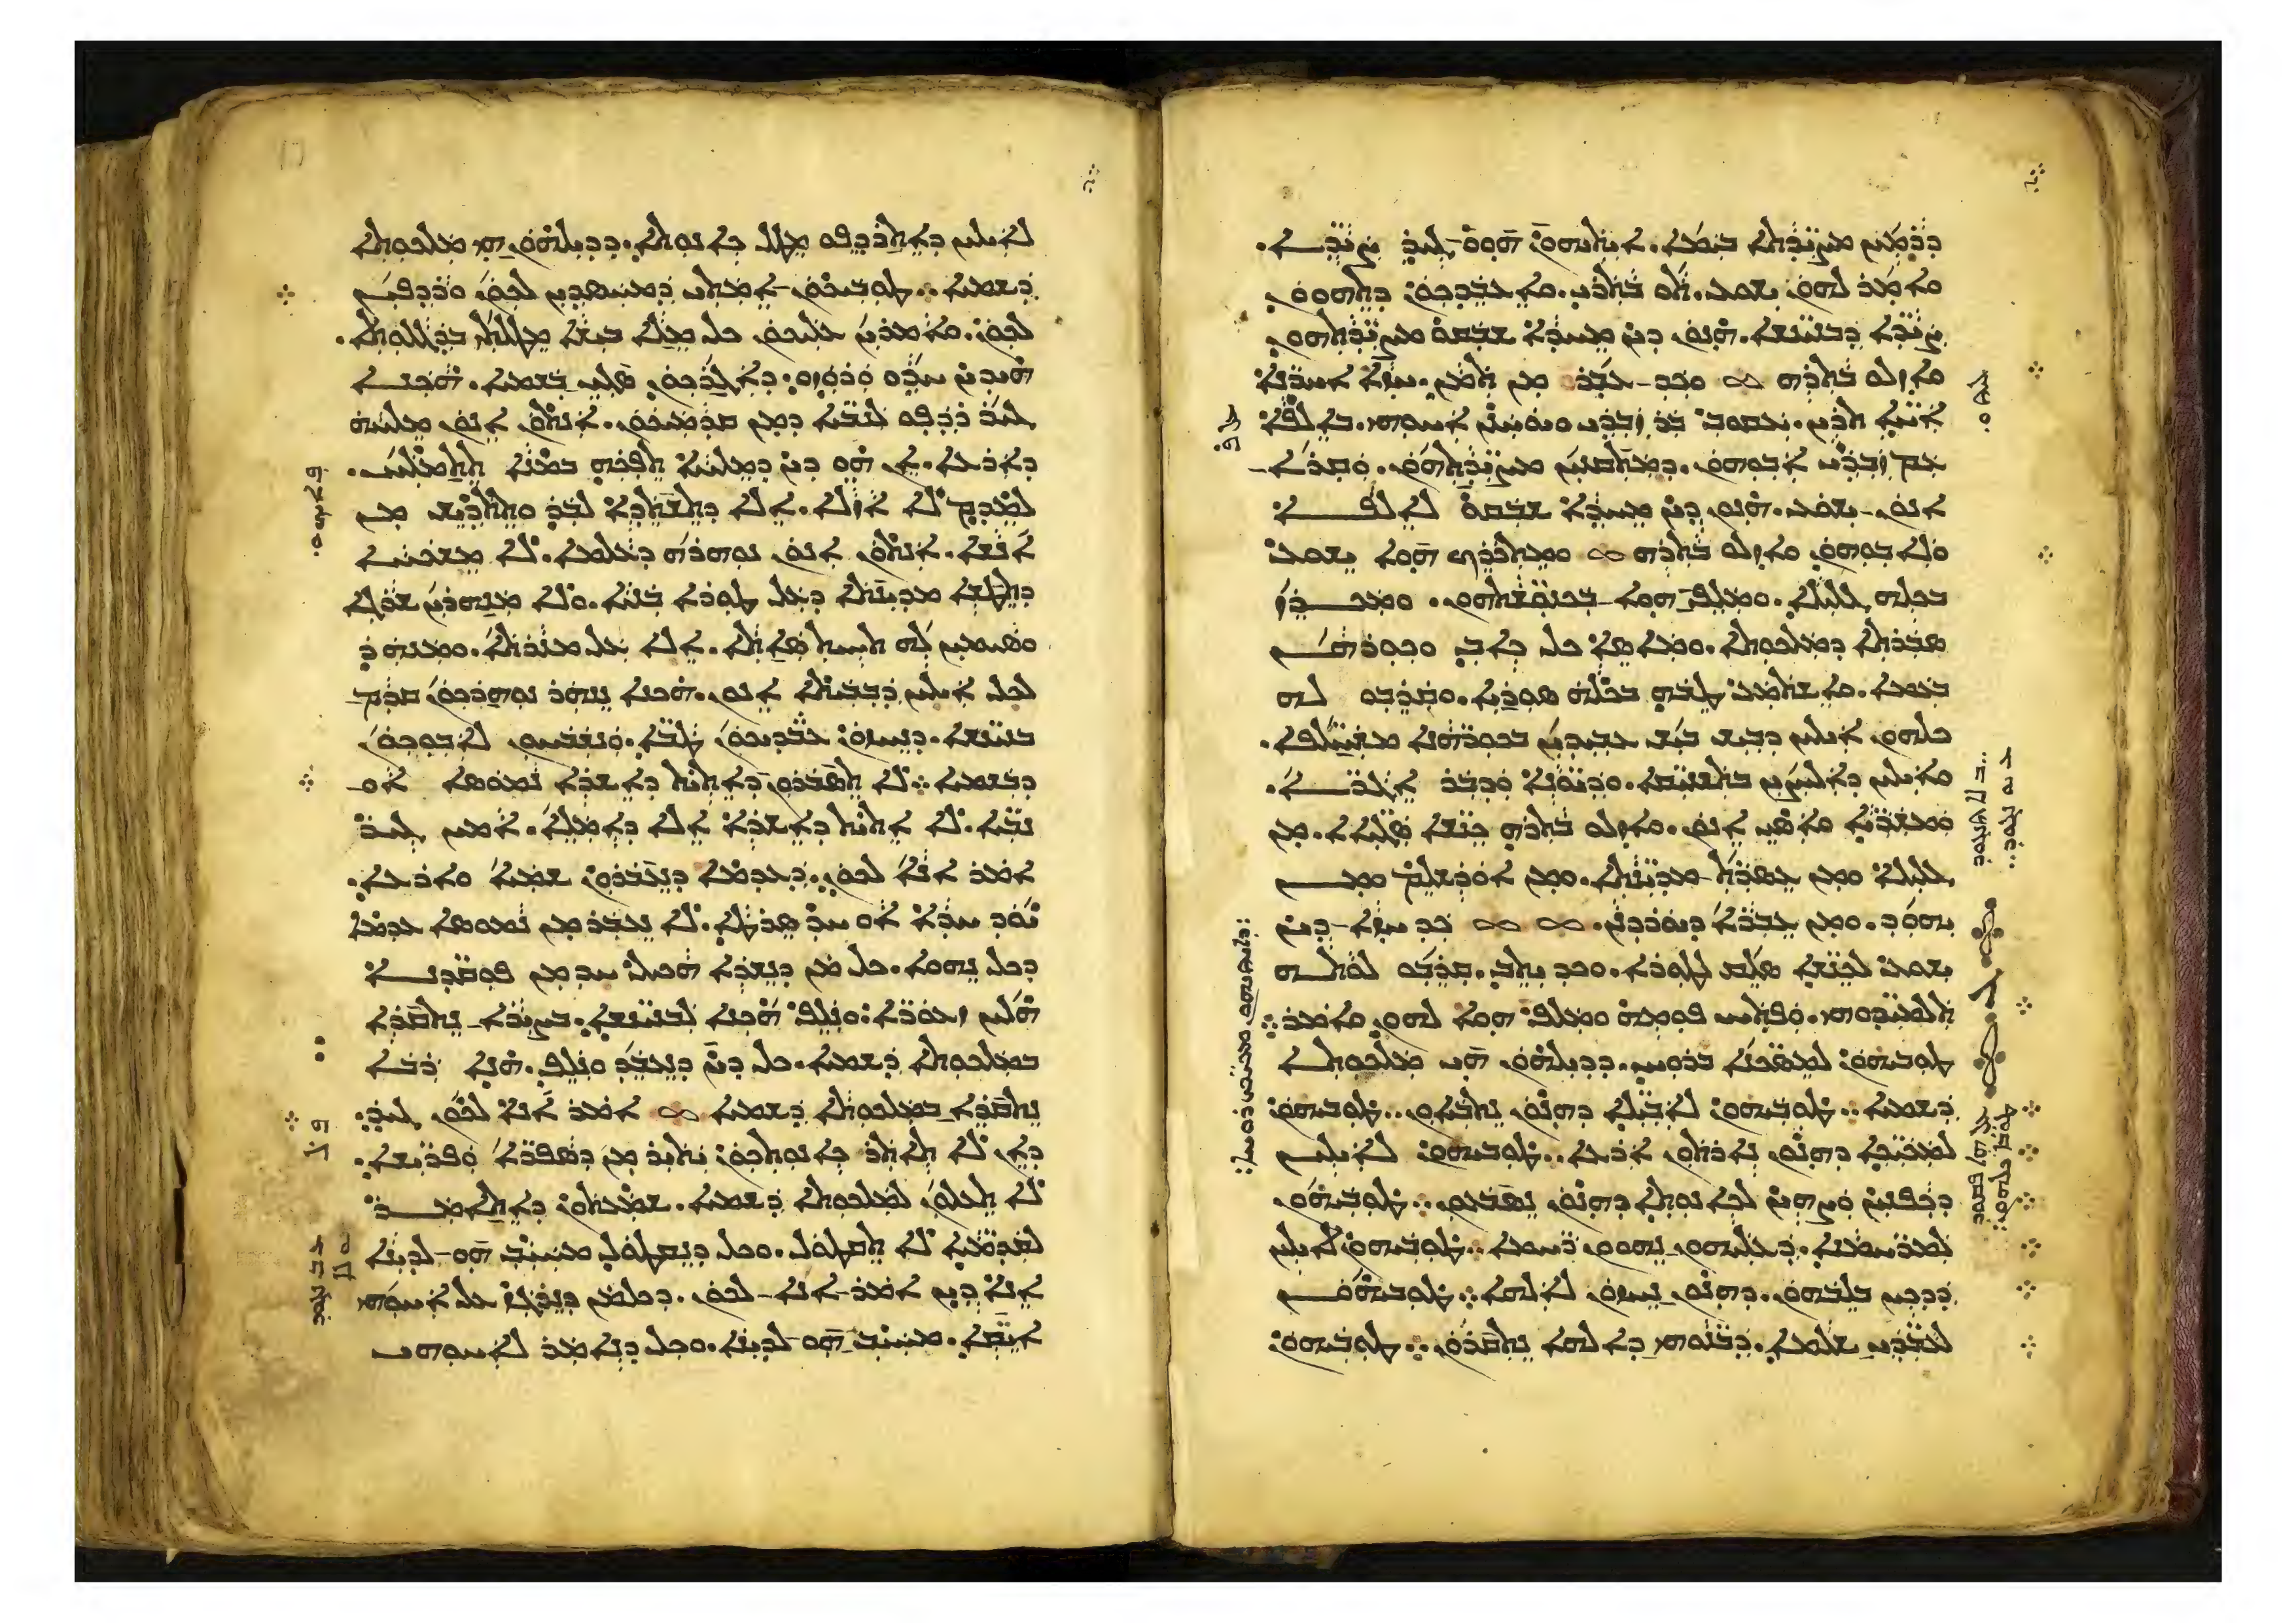 ܕܪܡܝܢ ܡܨܝܕܬܐ ܒܝܡܐ. ܐܝܬܝܗܘܢ ܗܘܘ ܓܝܪ ܨܝܕܐ.
ܘܐܡܪ ܠܗܘܢ ܝܫܘܥ. ܬܘ ܒܬܪܝ. ܘܐܥܒܕܟܘܢ ܕܬܗܘܘܢ
ܨܝܕܐ ܕܒܢܝܢܫܐ. ܗܢܘܢ ܕܝܢ ܡܚܕܐ ܫܒܩܘ ܡܨܝܕܬܗܘܢ
ܘܐܙܠܘ ܒܬܪܗ ܘܟܕ ܥܒܪ ܡܢ ܬܡܢ. ܚܙܐ ܐܚܪܢܐ
ܐܚܐ ܬܪܝܢ. ܝܥܩܘܒ ܒܪ ܙܒܕܝ ܘܝܘܚܢܢ ܐܚܘܗܝ. ܒܐܠܦܐ
ܥܡ ܙܒܕܝ ܐܒܘܗܘܢ. ܕܡܬܩܢܝܢ ܡܨܝܕܬܗܘܢ. ܘܩܪܐ
ܐܢܘܢ ܝܫܘܥ. ܗܢܘܢ ܕܝܢ ܡܚܕܐ ܫܒܩܘ ܠܐܠܦܐ
ܘܠܐܒܘܗܘܢ ܘܐܙܠܘ ܒܬܪܗ ܘܡܬܟܪܟ ܗܘܐ ܝܫܘܥ
ܒܟܠܗ ܓܠܝܠܐ. ܘܡܠܦ ܗܘܐ ܒܟܢܘܫܬܗܘܢ. ܘܡܟܪܙ
ܣܒܪܬܐ ܕܡܠܟܘܬܐ. ܘܡܐܣܐ ܟܠ ܟܐܒ ܘܟܘܪܗܢ
ܒܥܡܐ. ܘܐܫܬܡܥ ܛܒܗ ܒܟܠܗ ܣܘܪܝܐ. ܘܩܪܒܘ ܠܗ
ܟܠܗܘܢ ܐܝܠܝܢ ܕܒܝܫ ܒܝܫ ܥܒܝܕܝܢ ܒܟܘܪܗܢܐ ܡܫܚܠܦܐ.
ܘܐܝܠܝܢ ܕܐܠܝܨܝܢ ܒܬܫܢܝܩܐ. ܘܕܝܘܢܐ ܘܕܒܪ ܐܓܪܐ.
ܘܡܫܪܝܐ ܘܐܣܝ ܐܢܘܢ. ܘܐܙܠܘ ܒܬܪܗ ܟܢܫܐ ܣܓܝܐܐ. ܡܢ
ܓܠܝܠܐ ܘܡܢ ܥܣܪܬ ܡܕܝܢܬܐ. ܘܡܢ ܐܘܪܫܠܡ ܘܡܢ
ܝܗܘܕ. ܘܡܢ ܥܒܪܐ ܕܝܘܪܕܢܢ. ܟܕ ܚܙܐ ܕܝܢ
ܝܫܘܥ ܠܟܢܫܐ ܣܠܩ ܠܛܘܪܐ. ܘܟܕ ܝܬܒ. ܩܪܒܘ ܠܘܬܗ
ܬܠܡܝܕܘܗܝ. ܘܦܬܚ ܦܘܡܗ ܘܡܠܦ ܗܘܐ ܠܗܘܢ ܘܐܡܪ܀
ܛܘܒܝܗܘܢ ܠܡܣܟܢܐ ܒܪܘܚ. ܕܕܝܠܗܘܢ ܗܝ ܡܠܟܘܬܐ
ܕܫܡܝܐ܀ ܛܘܒܝܗܘܢ ܠܐܒܝܠܐ ܕܗܢܘܢ ܢܬܒܝܐܘܢ܀ ܛܘܒܝܗܘܢ
ܠܡܟܝܟܐ ܕܗܢܘܢ ܢܐܪܬܘܢ ܐܪܥܐ܀ ܛܘܒܝܗܘܢ ܠܐܝܠܝܢ
ܕܟܦܢܝܢ ܘܨܗܝܢ ܠܟܐܢܘܬܐ ܕܗܢܘܢ ܢܣܒܥܘܢ܀ ܛܘܒܝܗܘܢ
ܠܡܪܚܡܢܐ. ܕܥܠܝܗܘܢ ܢܗܘܘܢ ܪܚܡܐ܀ ܛܘܒܝܗܘܢ ܠܐܝܠܝܢ
ܕܕܟܝܢ ܒܠܒܗܘܢ. ܕܗܢܘܢ ܢܚܙܘܢ ܠܐܠܗܐ܀ ܛܘܒܝܗܘܢ
ܠܥܒܕܝ ܫܠܡܐ. ܕܒܢܘܗܝ ܕܐܠܗܐ ܢܬܩܪܘܢ܀ ܛܘܒܝܗܘܢ
ܠܐܝܠܝܢ ܕܐܬܪܕܦܘ ܡܛܠ ܟܐܢܘܬܐ. ܕܕܝܠܗܘܢ ܗܝ ܡܠܟܘܬܐ
ܕܫܡܝܐ܀ ܛܘܒܝܟܘܢ ܐܡܬܝ ܕܡܚܣܕܝܢ ܠܟܘܢ ܘܪܕܦܝܢ
ܠܟܘܢ. ܘܐܡܪܝܢ ܥܠܝܟܘܢ ܟܠ ܡܠܐ ܒܝܫܐ ܡܛܠܬܝ ܒܕܓܠܘܬܐ.
ܗܝܕܝܢ ܚܕܘ ܘܪܘܙܘ. ܕܐܓܪܟܘܢ ܣܓܝ ܒܫܡܝܐ. ܗܟܢܐ
ܓܝܪ ܪܕܦܘ ܠܢܒܝܐ ܕܡܢ ܩܕܡܝܟܘܢ. ܐܢܬܘܢ ܐܢܘܢ ܡܠܚܗ
ܕܐܪܥܐ. ܐܢ ܗܘ ܕܝܢ ܕܡܠܚܐ ܬܦܟܗ ܒܡܢܐ ܬܬܡܠܚ.
ܠܡܕܡ ܠܐ ܐܙܠܐ. ܐܠܐ ܕܬܫܬܕܐ ܠܒܪ ܘܬܬܕܝܫ ܡܢ
ܐܢܫܐ. ܐܢܬܘܢ ܐܢܘܢ ܢܘܗܪܗ ܕܥܠܡܐ. ܠܐ ܡܫܟܚܐ
ܕܬܛܫܐ ܡܕܝܢܬܐ ܕܥܠ ܛܘܪܐ ܒܢܝܐ. ܘܠܐ ܡܢܗܪܝܢ ܫܪܓܐ
ܘܣܝܡܝܢ ܠܗ ܬܚܝܬ ܣܐܬܐ. ܐܠܐ ܥܠ ܡܢܪܬܐ. ܘܡܢܗܪ
ܠܟܠ ܐܝܠܝܢ ܕܒܒܝܬܐ ܐܢܘܢ. ܗܟܢܐ ܢܢܗܪ ܢܘܗܪܟܘܢ ܩܕܡ
ܒܢܝܢܫܐ. ܕܢܚܙܘܢ ܥܒܕܝܟܘܢ ܛܒܐ. ܘܢܫܒܚܘܢ ܠܐܒܘܟܘܢ
ܕܒܫܡܝܐ܀ ܠܐ ܬܣܒܪܘܢ ܕܐܬܝܬ ܕܐܫܪܐ ܢܡܘܣܐ ܐܘ
ܢܒܝܐ. ܠܐ ܐܬܝܬ ܕܐܫܪܐ ܐܠܐ ܕܐܡܠܐ. ܐܡܝܢ ܓܝܪ
ܐܡܪ ܐܢܐ ܠܟܘܢ. ܕܥܕܡܐ ܕܢܥܒܪܘܢ ܫܡܝܐ ܘܐܪܥܐ.
ܝܘܕ ܚܕܐ ܐܘ ܚܕ ܣܪܛܐ. ܠܐ ܢܥܒܪ ܡܢ ܢܡܘܣܐ ܥܕܡܐ
ܕܟܠ ܢܗܘܐ. ܟܠ ܡܢ ܕܢܫܪܐ ܗܟܝܠ ܚܕ ܡܢ ܦܘܩܕܢܐ
ܗܠܝܢ ܙܥܘܪܐ ܘܢܠܦ ܗܟܢܐ ܠܒܢܝܢܫܐ. ܒܨܝܪܐ ܢܬܩܪܐ
ܒܡܠܟܘܬܐ ܕܫܡܝܐ. ܟܠ ܕܝܢ ܕܢܥܒܕ ܘܢܠܦ. ܗܢܐ ܪܒܐ
ܢܬܩܪܐ ܒܡܠܟܘܬܐ ܕܫܡܝܐ ܐܡܪ ܐܢܐ ܠܟܘܢ ܓܝܪ܀
ܕܐܢ ܠܐ ܬܐܬܪ ܟܐܢܘܬܟܘܢ ܝܬܝܪ ܡܢ ܕܣܦܪܐ ܘܦܪܝܫܐ.
ܠܐ ܬܥܠܘܢ ܠܡܠܟܘܬܐ ܕܫܡܝܐ. ܫܡܥܬܘܢ ܕܐܬܐܡܪ
ܠܩܕܡܝܐ ܠܐ ܬܩܛܘܠ. ܘܟܠ ܕܢܩܛܘܠ ܡܚܝܒ ܗܘ ܠܕܝܢܐ
ܐܢܐ ܕܝܢ ܐܡܪ ܐܢܐ ܠܟܘܢ. ܕܟܠ ܡܢ ܕܢܪܓܙ ܥܠ ܐܚܘܗܝ
ܐܝܩܐ. ܡܚܝܒ ܗܘ ܠܕܝܢܐ. ܘܟܠ ܕܢܐܡܪ ܠܐܚܘܗܝ